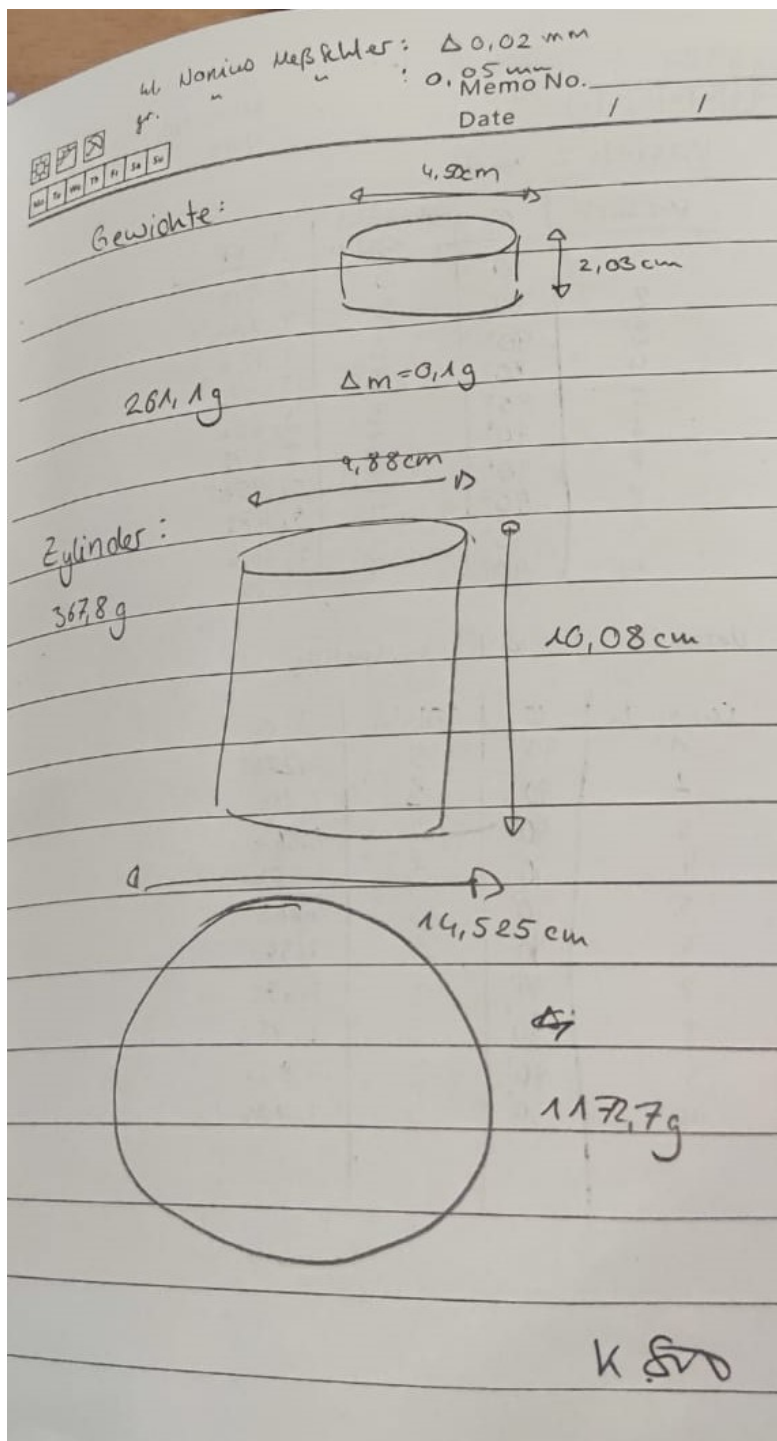 kl. Nonius Meßfehler: Δ 0,02 mm
gr. " " : 0,05 mm
Memo No.
Date / /
Mo Tu We Th Fr Sa Su
Gewichte:
4,50cm
2,03cm
261,1g Δm=0,1g
9,88cm
Zylinder:
367,8g
10,08cm
14,525cm
1172,7g
K